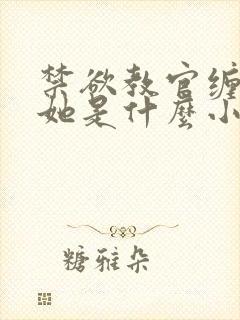 禁欲教官缠
她是什麼小
糖雅朵